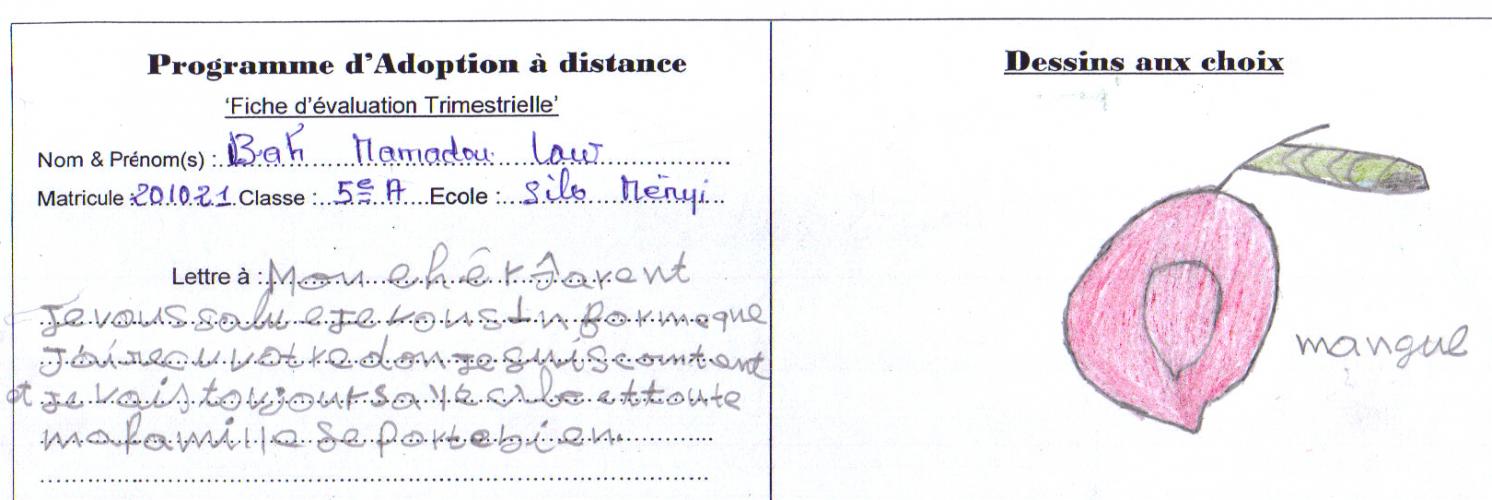 Programme d'Adoption à distance
'Fiche d'évaluation Trimestrielle'
Nom & Prénom(s) : Bah Mamadou Law
Matricule : 201021 Classe : 5e A Ecole : Silo
Lettre à : Mon chêr Parent
Je vous salue je vous Informe que
J'ai recu votre don je suis comtent
et je vais toujours a l'école et toute
ma famille se porte bien.
Dessins aux choix
mangue